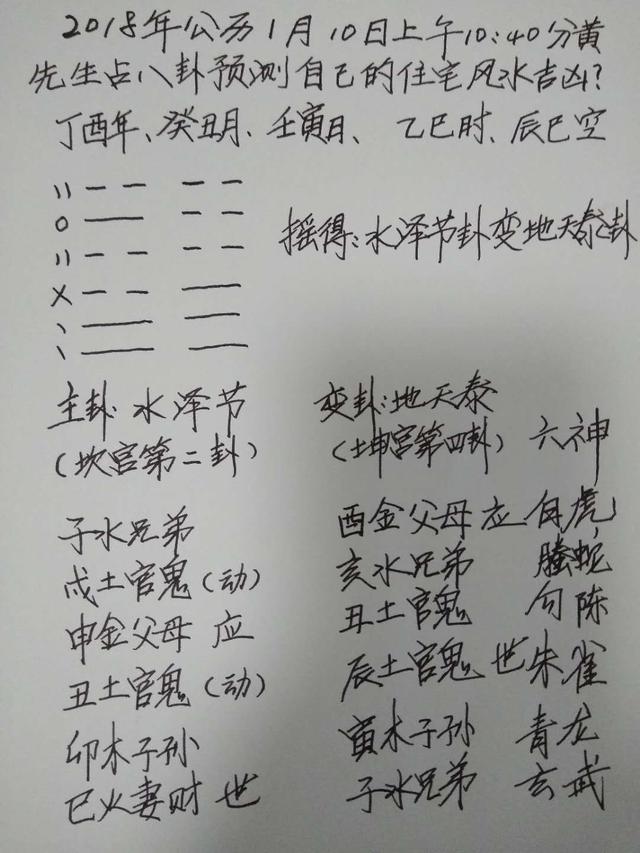 2018年公历1月10日上午10:40分黄
先生占八卦预测自己的住宅风水吉凶?
丁酉年、癸丑月、壬寅日、乙巳时、辰巳空
摇得:水泽节卦变地天泰卦
主卦:水泽节 变卦:地天泰
(坎宫第二卦) (土坤宫第四卦) 六神
子水兄弟 酉金父母 应 白虎
戌土官鬼(动) 亥水兄弟 螣蛇
申金父母 应 丑土官鬼 勾陈
丑土官鬼(动) 辰土官鬼 世 朱雀
卯木子孙 寅木子孙 青龙
巳火妻财 世 子水兄弟 玄武